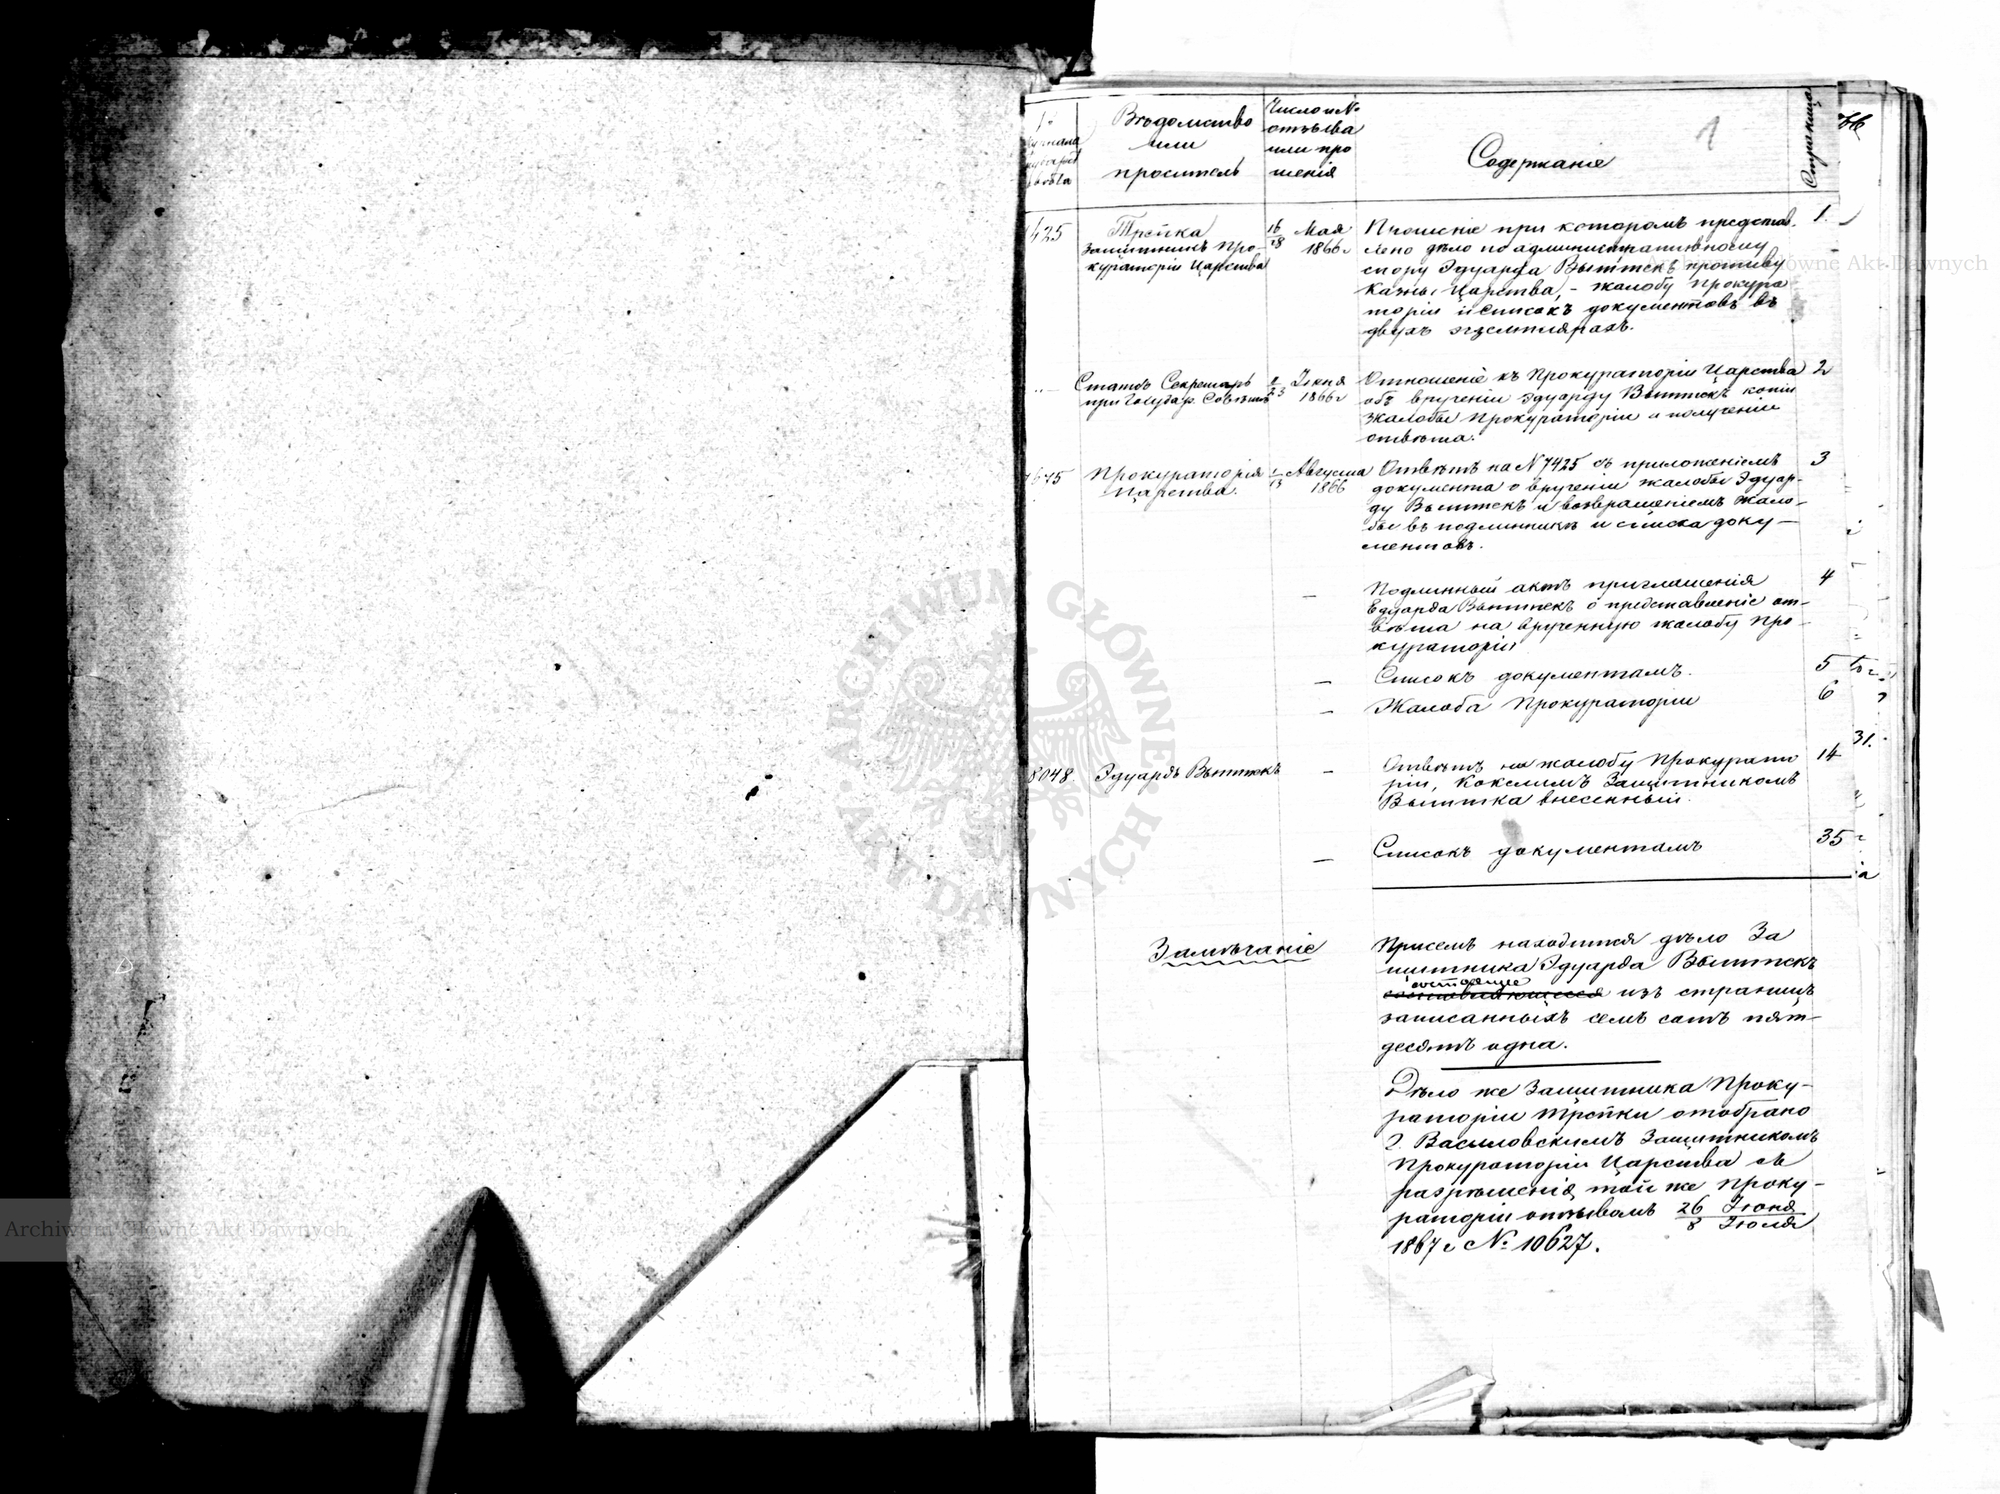 1
Вѣдомство
или
проситель
Число и №
отзыва
или про
шенія
Содержаніе
Страница
7425
Трейка
Защитникъ Про-
кураторіи Царства
16/28 Мая
1866 г
Прошеніе при которомъ представ.
лено дѣло по административному
спору Эдуарда Выттекъ противу
Казны Царства, - жалобу Прокура
торіи и списокъ документовъ въ
двухъ экземплярахъ.
1.
Статсъ Секретарь
при Государ. Совѣтѣ
23 Іюня
1866 г
Отношеніе къ Прокураторіи Царства
объ врученіи Эдуарду Выттекъ копіи
жалобы Прокураторіи и полученіи
отвѣта.
2
Прокураторія
Царства.
1/13 Августа
1866
Отвѣтъ на N 7425 съ приложеніемъ
документа о врученіи жалобы Эдуар-
ду Выттекъ и возвращеніемъ жало-
бы въ подлинникѣ и списка доку-
ментовъ.
3
Подлинный актъ приглашенія
Едуарда Выттекъ о представленіе от-
вѣта на врученную жалобу Про-
кураторіи
4
Списокъ документамъ.
5
Жалоба Прокураторіи
6
31.
8048
Эдуардъ Выттекъ
Отвѣтъ на жалобу Прокурато
ріи, Кокелимъ Защитникомъ
Выттка внесенный.
14
Списокъ документамъ
35
Замѣчаніе
Присемъ находится дѣло За
щитника Эдуарда Выттекъ
состоящее
изъ страницъ
записанныхъ семь сотъ пят-
десятъ одна.
Дѣло же Защитника Проку-
раторіи Трейки отобрано
Г. Василовскимъ Защитникомъ
Прокураторіи Царства съ
разрѣшенія той же Проку-
раторіи отзывомъ 26 Іюня / 8 Іюля
1867 г № 10627.
ARCHIWUM GŁÓWNE AKT DAWNYCH
Archiwum Główne Akt Dawnych
Archiwum Główne Akt Dawnych